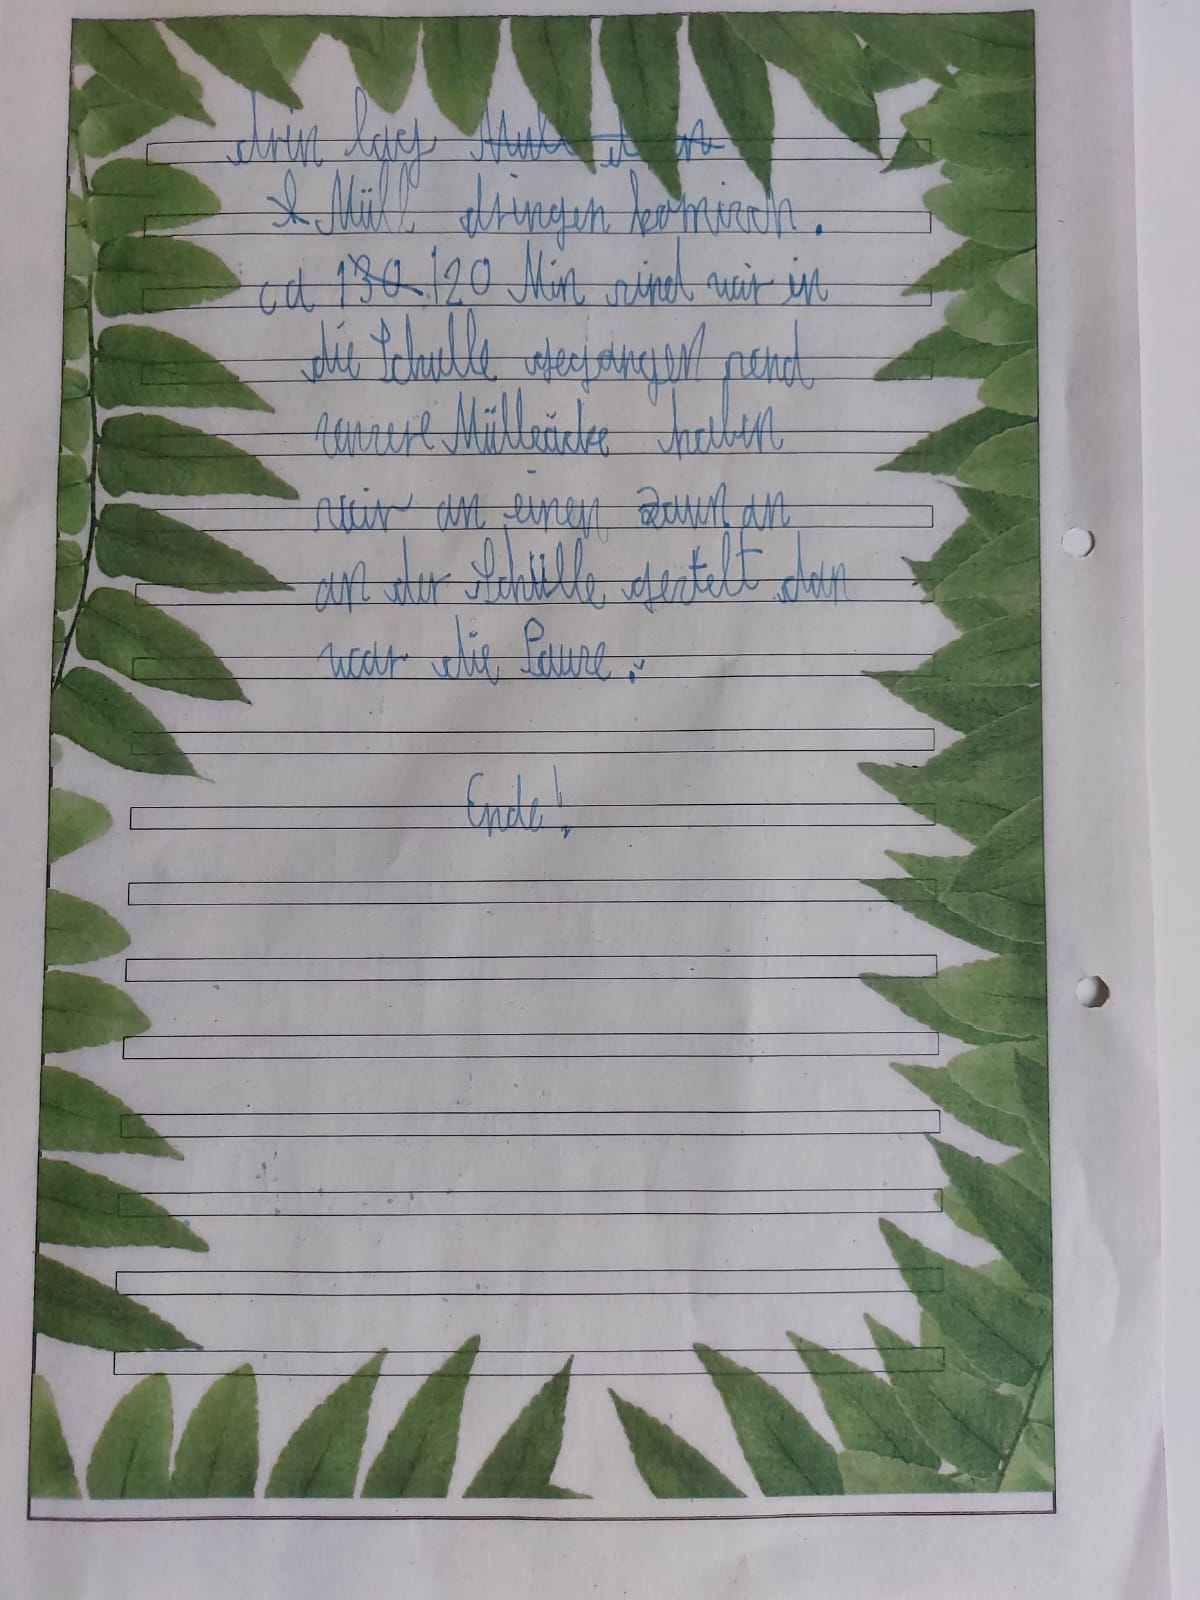 drin lag Müll
Müll dringen komisch.
ca 130 120 Min sind wir in
die Schulle gegangen und
unsere Müllsäcke haben
wir an einen Zaun an
an der Schülle gestelt dan
war die Pause.
Ende!